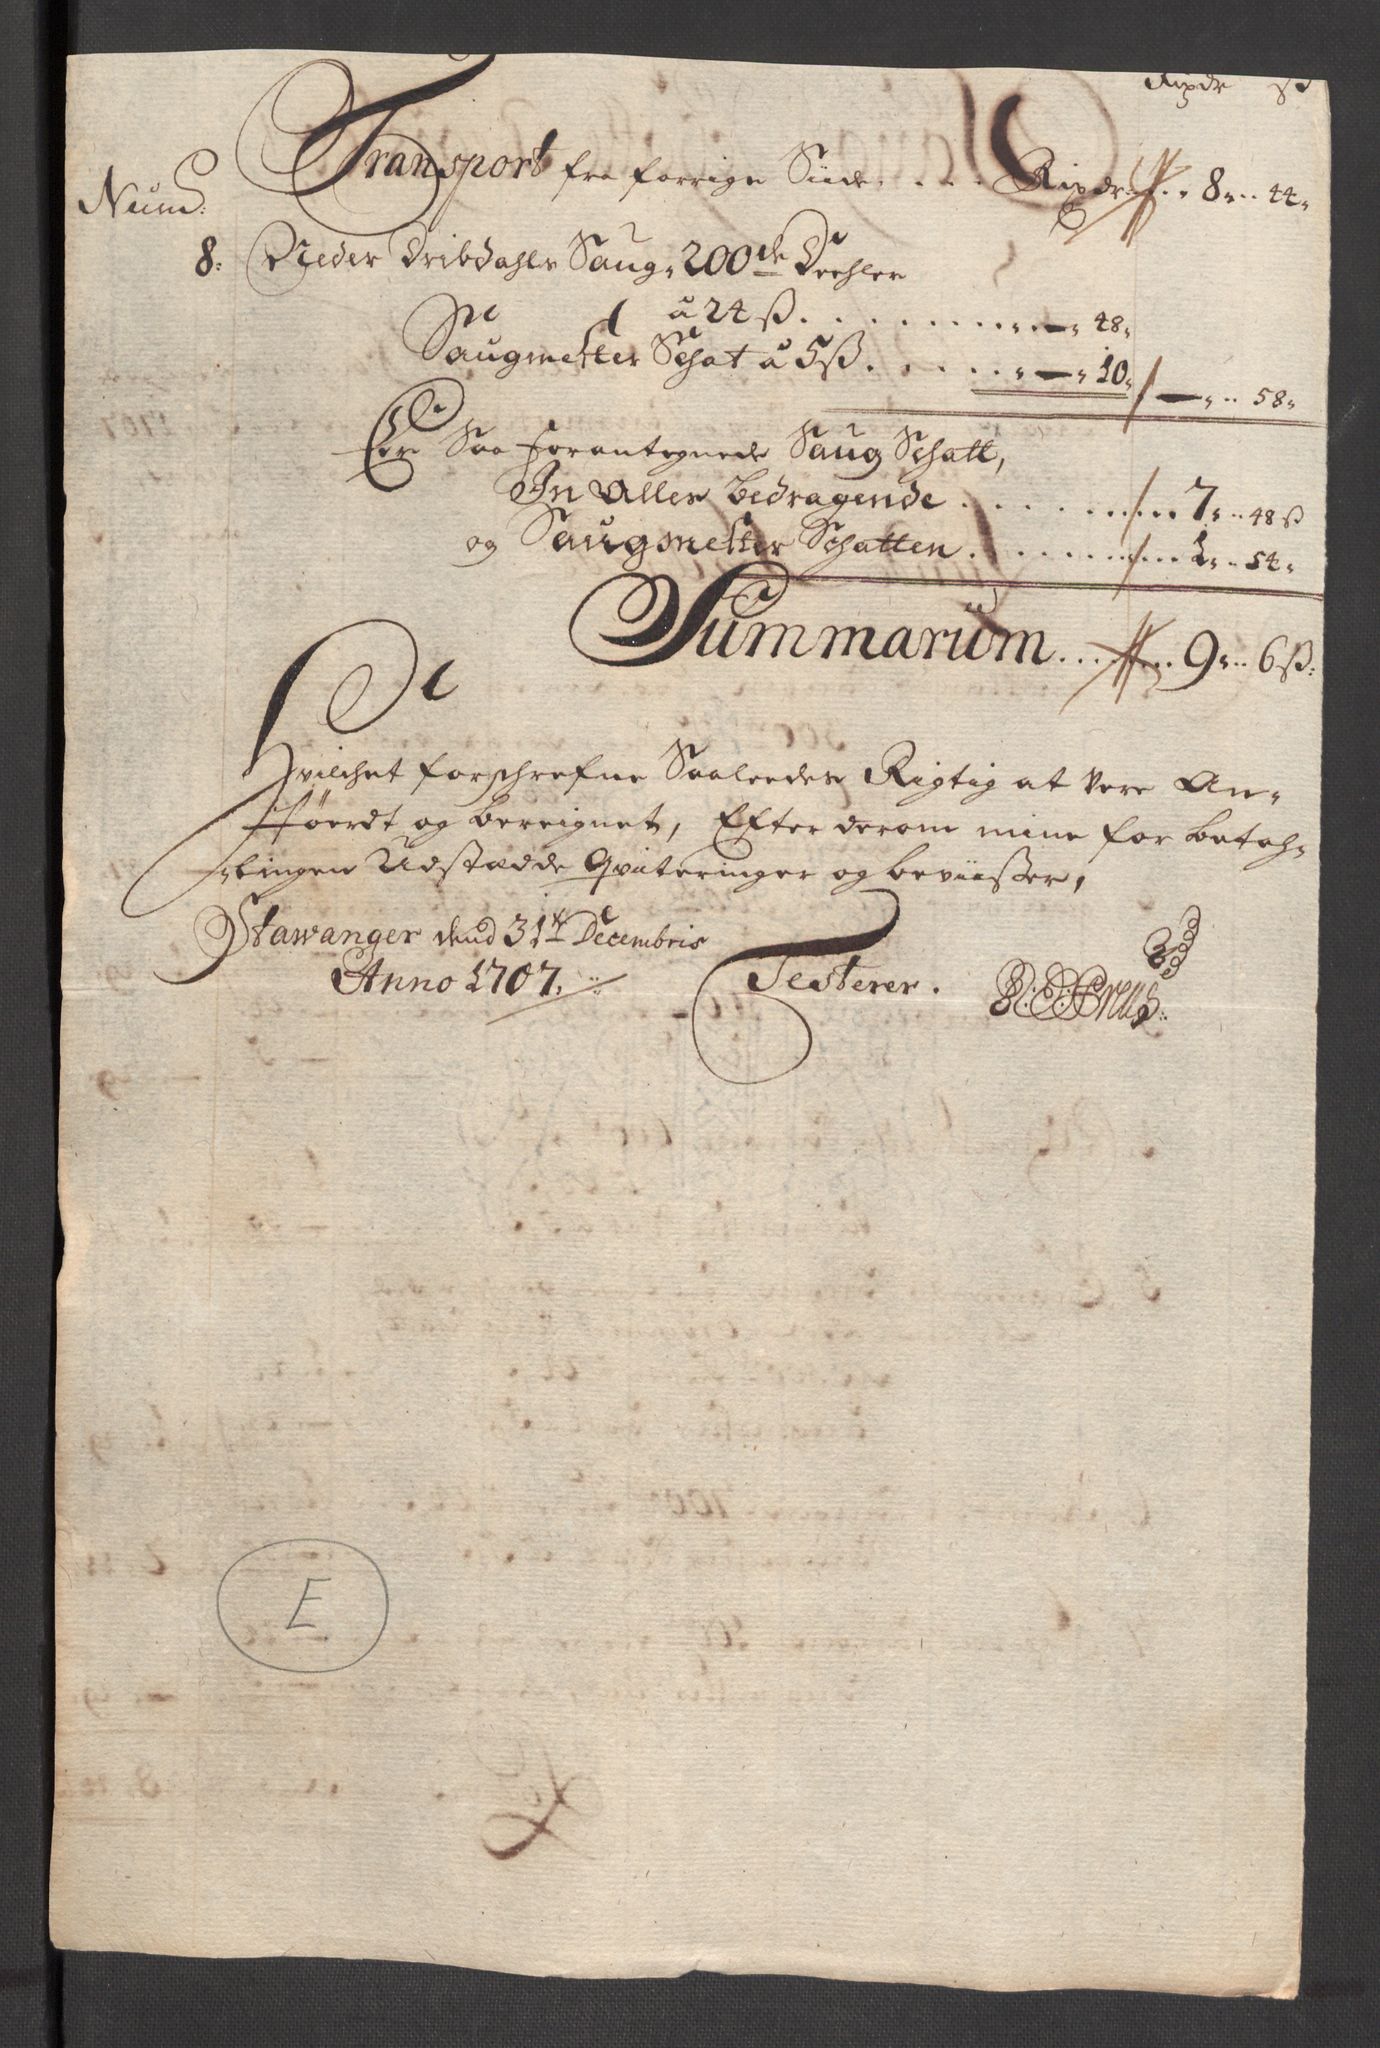 Rixdr ß
Transport fra forrige Siide . . . Rixdr . . 8 „ .. 44 „
Num:
8: Neder Dribdahls Saug „ 200de Deehler
a 24 ß. . . . . . . . . „ — „ 48 „
Saugmester Schat a 5 ß. . . . . „ — „ 10 „ / — „ .. 58 „
Er Saa forantegnede Saug Schatt,
In Alles bedragende . . . . . . . 7 „ .. 48 ß
og Saugmester Schatten . . . . . . . 1 „ .. 54 „
Summarum . . . . 9 „ .. 6 ß:
Hvilchet forschrefne Saaleedes Rigtig at vere An„
„fördt og bereignet, Efter derom mine for betah„
„lingen Udstædde Qviteringer og beviisser,
Stawanger dend 31te Decembris
Anno 1707.
Testerer.